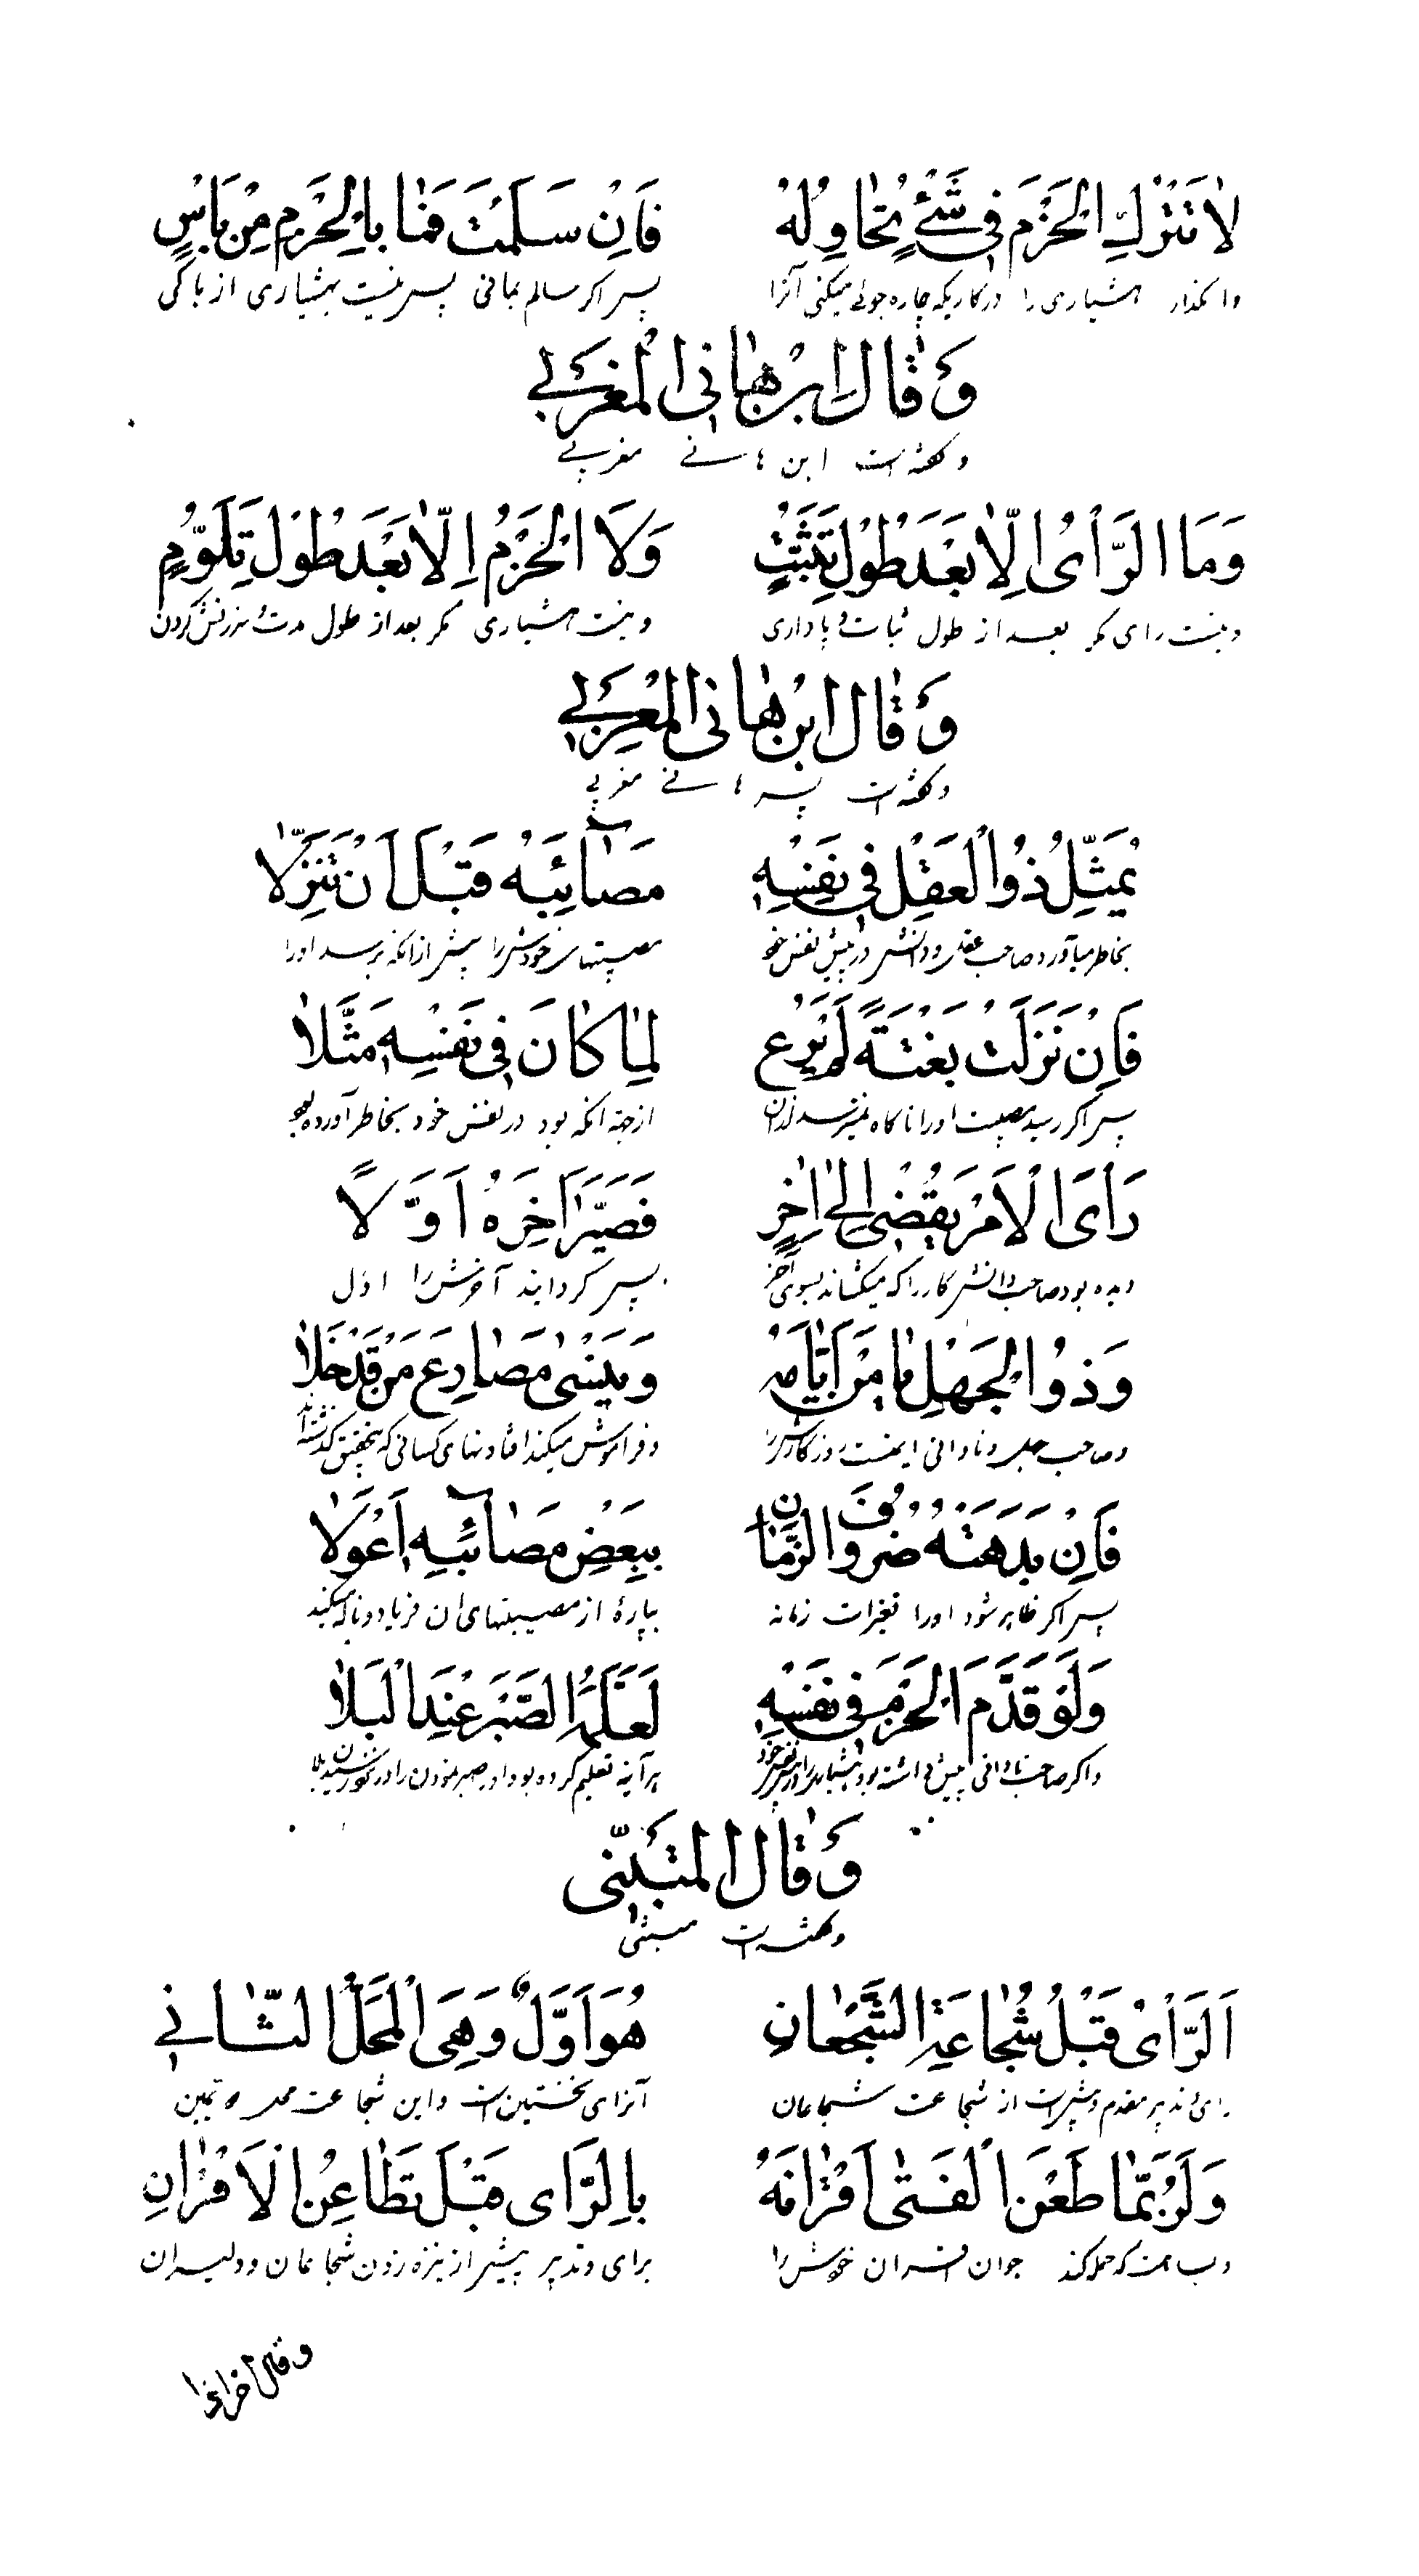 لا تَتْرُكِ الْحَزْمَ فى شَىْءٍ تُحاوِلُهُ فَاِنْ سَلِمْتَ فَما بِالْحَزْمِ مِنْ بَاْسٍ
وا مگذار هشیاری را در کاریکه چاره جوئی میکنی آنرا پس اگر سالم بمانی پس نیست بهشیاری از باکی
وَ قالَ ابْنُ هانى الْمَغْرَبى
و گفته است ابن هانی مغربی
وَمَا الرَّأىُ اِلّا بَعْدَ طُوْلِ تَثَبُّتٍ وَلَا الْحَزْمُ اِلّا بَعْدَ طُوْلِ تَلَوُّمٍ
و نیست رای مگر بعد از طول ثبات و پاداری و نیست هشیاری مگر بعد از طول مدت سرزنش کردن
وَ قالَ ابْنُ هانى الْمَغْرِبى
و گفته است پسر هانی مغربی
يُمَثِّلُ ذُو الْعَقْلِ فى نَفْسِهِ مَصآئِبَهُ قَبْلَ اَنْ تَنْزِلا
بخاطر میآورد صاحب عقل و دانش در پیش نفس خود مصیبتهای خودش را پیش از آنکه برسد اورا
فَاِنْ نَزَلَتْ بَغْتَةً لَمْ يُرَعْ لِما كانَ فى نَفْسِهِ مَثَّلا
پس اگر رسید مصیبت اورا ناگاه نمیترسد از آن از جهة آنکه بود در نفس خود بخاطر آورده بود
رَاَى الْاَمْرَ يُقْضى اِلى اخِرٍ فَصَيَّرَ اخِرَهُ اَوَّلًا
دیده بود صاحب دانش کار را که میکشاند بسوی آخر پس گردانید آخرش را اول
وَذُو الْجَهْلِ يَاْمَنُ اَيّامَهُ وَيَنْسى مَصارِعَ مَنْ قَدْ خَلا
و صاحب جهل و نادانی ایمنست روزگارش را و فراموش میکند افتادنهای کسانی که بتحقیق گذشته‌اند
فَاِنْ بَدَهَتْهُ صُرُوفُ الزَّمانِ بِبَعْضِ مَصآئِبِهِ اَعْوَلا
پس اگر ظاهر شود اورا تغیرات زمانه بپارهٔ از مصیبتهای آن فریاد و ناله میکند
وَلَوْ قَدَّمَ الْحَزْمَ فى نَفْسِهِ لَعَلَّمَهُ الصَّبْرَ عِنْدَ الْبَلا
و اگر صاحب نادانی پیش داشته بود هشیاری را در نفس خود هر آینه تعلیم کرده بود اورا صبر نمودن را در نزد رسیدن بلا
وَ قالَ الْمُتَنَبّى
و گفته است متنبی
اَلرَّأىُ قَبْلَ شُجاعَةِ الشُّجْعانِ هُوَ اَوَّلٌ وَهِىَ الْمَحَلُّ الثّانى
رای و تدبیر مقدم و پیش است از شجاعت شجاعان آنرای نخستین است و این شجاعت محل دویمین
وَلَرُبَّما طَعَنَ الْفَتى اَقْرانَهُ بِالرَّاىِ قَبْلَ تَطاعُنِ الْاَقْرانِ
و بسا هست که حمله کند جوان اقران خویش را برای و تدبیر پیش از نیزه زدن شجاعان و دلیران
و قال اخر ايضا